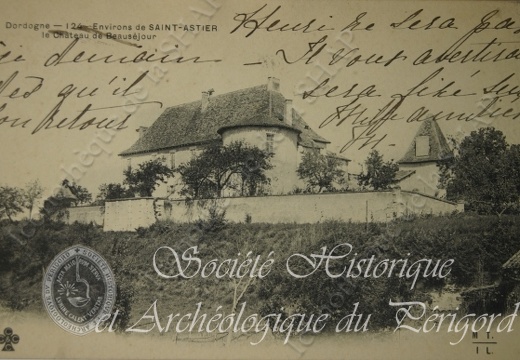 Dordogne — 124 — Environs de SAINT-ASTIER
le Château de Beauséjour
Henri ne sera pas
demain — Il vous avertira
qu'il sera fixé sur
son retour
Société Historique
et Archéologique du Périgord
M T
I L